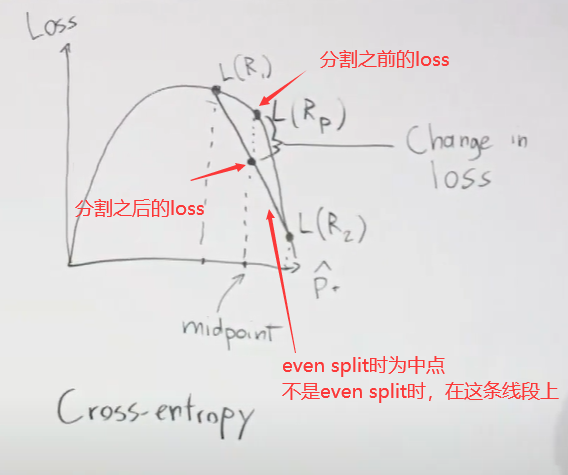 Loss
L(R₁)
分割之前的loss
L(Rp)
Change in
loss
分割之后的loss
L(R₂)
P̂+
midpoint
even split时为中点
不是even split时，在这条线段上
Cross-entropy